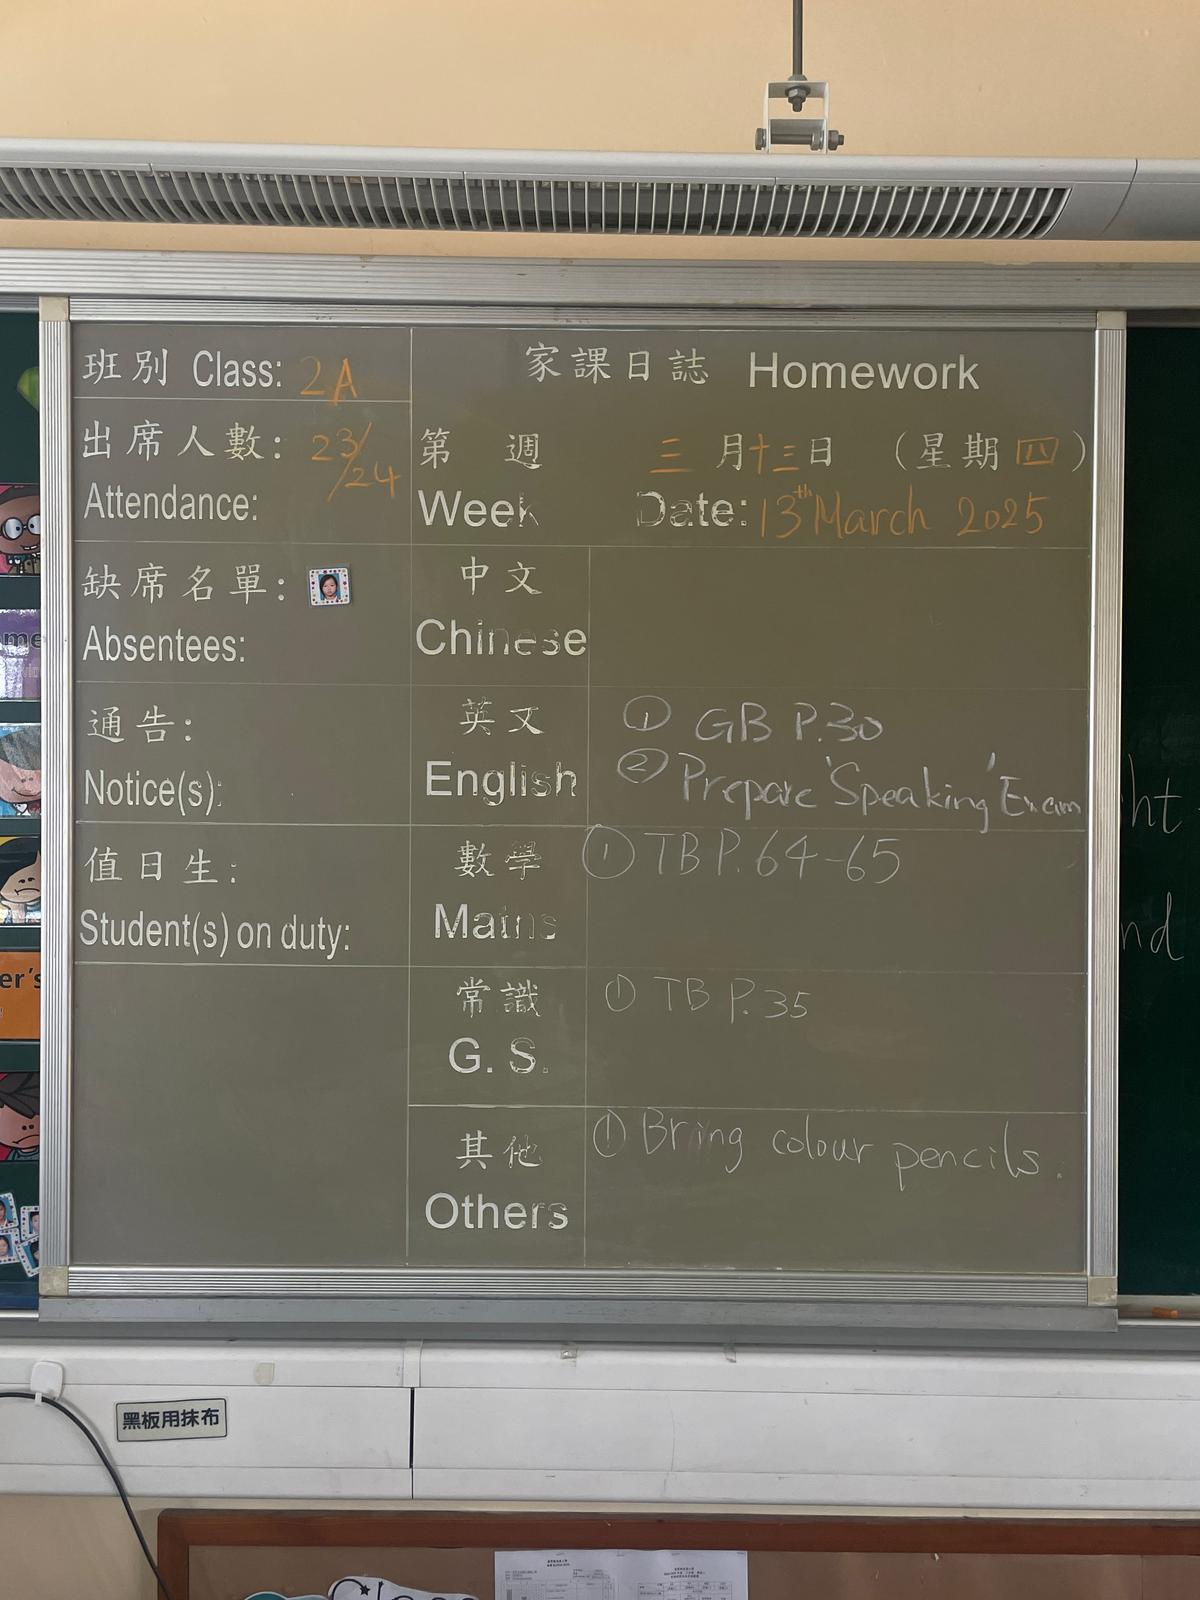 班別 Class: 2A
出席人數: 23/24
Attendance:
缺席名單:
Absentees:
通告:
Notice(s):
值日生:
Student(s) on duty:
家課日誌 Homework
第 週 三月十三日 (星期四)
Week Date: 13th March 2025
中文
Chinese
英文 ① GB P.30
English ② Prepare 'Speaking' Exam
數學 ① TB P.64-65
Maths
常識 ① TB P.35
G. S.
其他 ① Bring colour pencils.
Others
ht
nd
me
er's
黑板用抹布